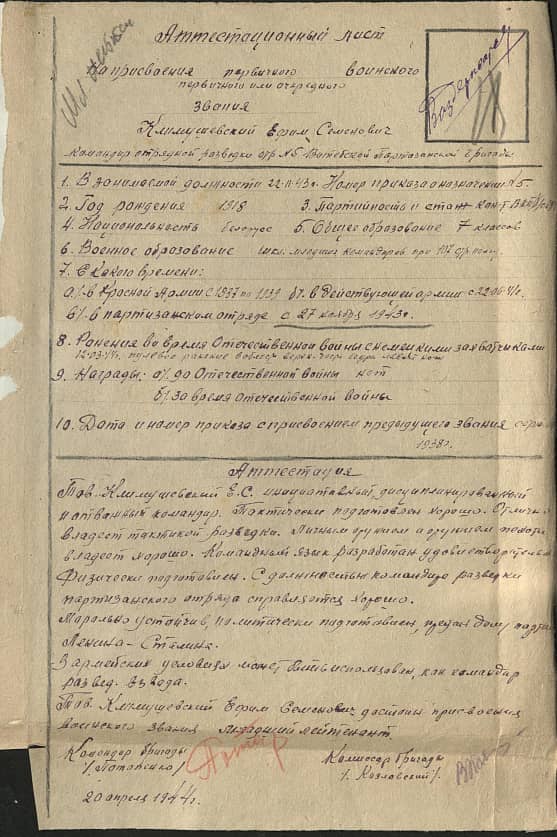 Аттестационный лист
На присвоения первичного воинского
первичного или очередного
звания
Климушевский Ефим Семенович
Командир отрядной разведки отр №5 Витебской Партизанской бригады
1. В занимаемой должности 22-11-43г. Номер приказа о назначении №5.
2. Год рождения 1918 3. Партийность и стаж
4. Национальность белорус 5. Общее образование 7 классов
6. Военное образование школ. младших командиров при
7. С какого времени:
а/. в Красной Армии с 1937 по 1939 б/. в действующей армии с
в/. в партизанском отряде с 27 ноября 1943г.
8. Ранения во время Отечественной войны с немецкими захватчиками
пулевое ранение
9. Награды: а/. до Отечественной войны нет
б/. за время Отечественной войны
10. Дата и номер приказа с присвоением предыдущего звания
1938г.
Аттестация
Тов. Климушевский Е.С. инициативный, дисциплинированный
командир. Тактически подготовлен хорошо. Отлично
владеет тактикой разведки. Личным оружием и оружием пехоты
владеет хорошо. Командный язык разработан удовлетворительно
Физически подготовлен. С должностью командира разведки
партизанского отряда справляется хорошо.
Морально устойчив, политически подготовлен, предан делу партии
Ленина-Сталина.
В армейских условиях может быть использован, как командир
развед. взвода.
Тов. Климушевский Ефим Семенович достоин присвоения
воинского звания младший лейтенант.
Командир бригады
/. Потапенко /
Комиссар бригады
/. Козловский /.
20 апреля 1944г.